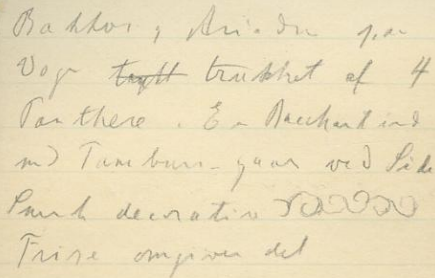 Bakkos og Ariadne paa
Vogn trukket af 4
Panthere. En Bacchantinde
med Tamburin gaar ved Side
Smuk decorativ
Frise omgiver det